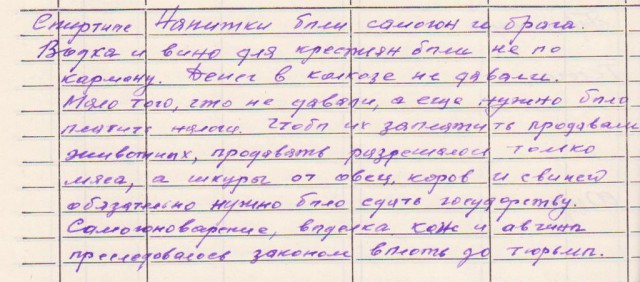 Спиртные Напитки были самогон и брага.
Водка и вино для крестьян были не по
карману. Денег в колхозе не давали.
Мало того, что не давали, а еще нужно было
платить налоги. Чтобы их заплатить продавали
животных, продавать разрешалось только
мяса, а шкуры от овец, коров и свиней
обязательно нужно было сдать государству.
Самогоноварение, выделка кож и авчины
преследовалось законом вплоть до тюрьмы.